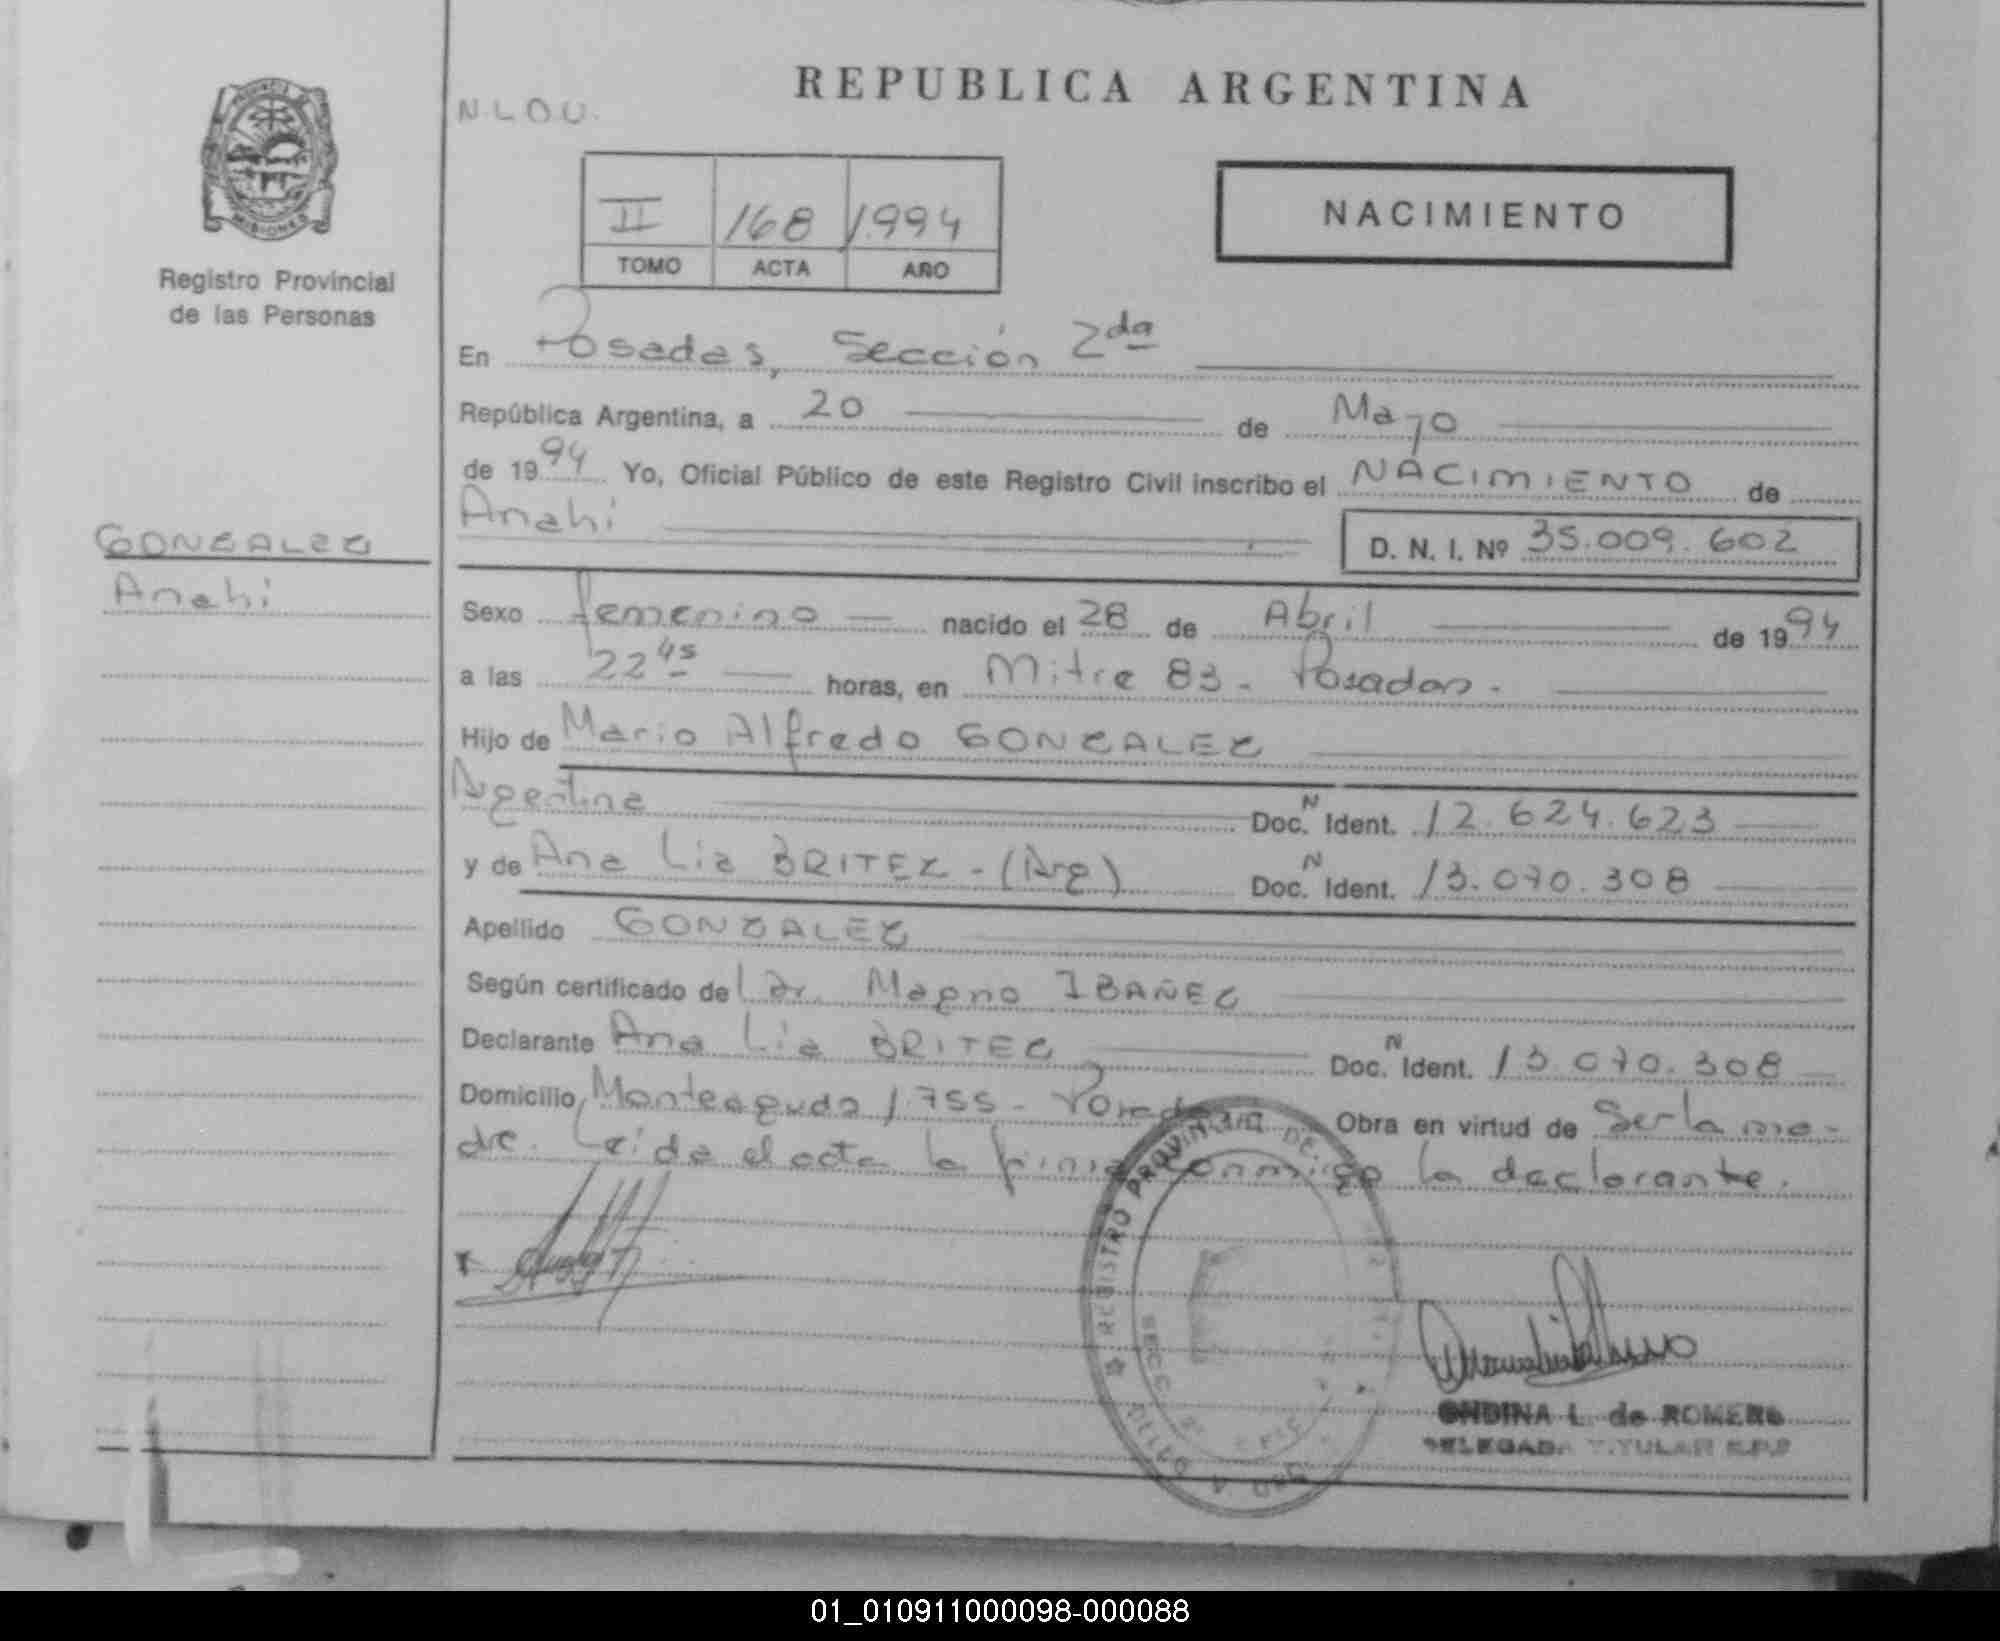 REPUBLICA ARGENTINA
N.L.O.U.
PROVINCIA DE
MISIONES
Registro Provincial
de las Personas
II 168 1.994
TOMO ACTA AÑO
NACIMIENTO
En Posadas, Sección 2da
República Argentina, a 20 de Mayo
de 1994 Yo, Oficial Público de este Registro Civil inscribo el NACIMIENTO de
Anahi
D. N. I. Nº 35.009.602
GONZALEZ
Anahi
Sexo femenino nacido el 28 de Abril de 1994
a las 22 45 horas, en Mitre 83 - Posadas.
Hijo de Mario Alfredo GONZALEZ
Argentina Doc. N Ident. 12.624.623
y de Ana Lia BRITEZ - (Arg) Doc. N Ident. 13.070.308
Apellido GONZALEZ
Según certificado del Dr. Magno IBAÑEZ
Declarante Ana Lia BRITEZ Doc. N Ident. 13.070.308
Domicilio Monteagudo 1.755 - Posadas Obra en virtud de Ser la ma-
dre. Leida el acta la firma conmigo la declarante.
REGISTRO PROVINCIAL DE
SECC. 2ª
ONDINA L. de ROMERO
DELEGADA TITULAR R.P.P
01_010911000098-000088